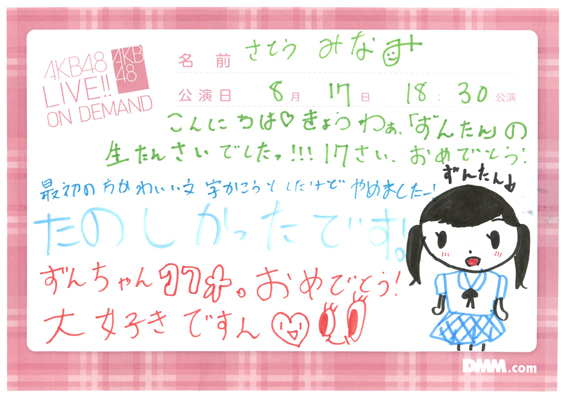 AKB48
LIVE!!
ON DEMAND
AKB
48
名前 さとう みなみ
公演日 8月 17日 18:30公演
こんにちは♡きょうわぁ、「ずんたん」の
生たんさいでしたッ!!! 17さい、おめでとう!
最初の方かわいい文字かこうとしたけど やめましたー!
ずんたん
たのしかったです。
ずんちゃん17才。おめでとう!
大好きですん
DMM.com